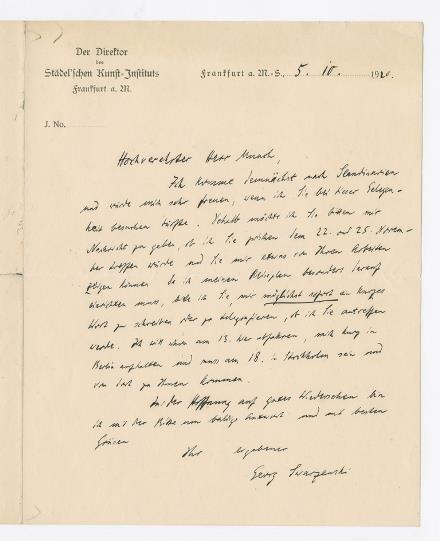 Der Direktor
des
Städel'schen Kunst-Instituts
Frankfurt a. M.
Frankfurt a. M.-S., 5. 10. 1920.
J. No.
Hochverehrter Herr Munch,
Ich komme demnächst nach Skandinavien
und würde mich sehr freuen, wenn ich Sie bei dieser Gelegen-
heit besuchen dürfte. Deshalb möchte ich Sie bitten mir
Nachricht zu geben, ob ich Sie zwischen dem 22. und 25. Novem-
ber treffen würde und Sie mir etwas von Ihren Arbeiten
zeigen können. Da ich meinen Reiseplan besonders darauf
einrichten muss, bitte ich Sie, mir möglichst sofort ein kurzes
Wort zu schreiben oder zu telegrafieren, ob ich Sie antreffen
werde. Ich will schon am 13. hier abfahren, mich kurz in
Berlin aufhalten und muss am 18. in Stockholm sein und
von dort zu Ihnen kommen.
In der Hoffnung auf gutes Wiedersehen bin
ich mit der Bitte um baldige Antwort und mit besten
Grüssen
Ihr ergebener
Georg Swarzenski